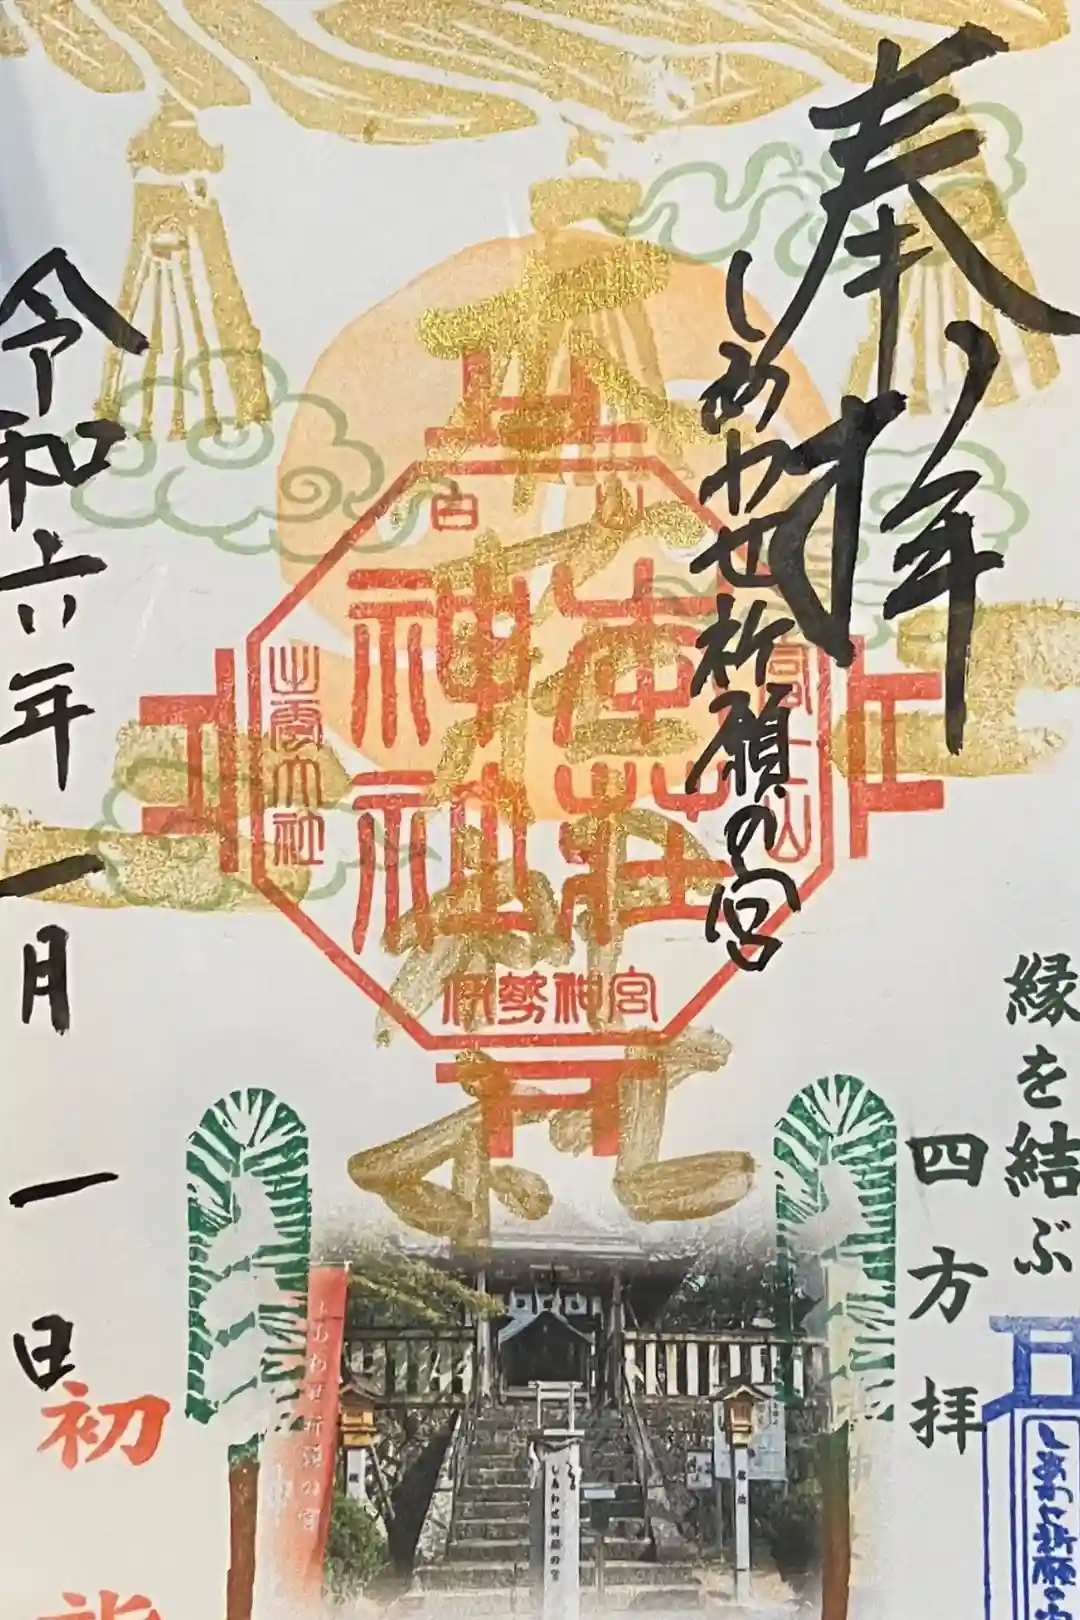 奉拝
しあわせ祈願の宮
縁を結ぶ
四方拝
白山
富士山
本荘
神社
出雲大社
伊勢神宮
令和六年一月一日
初詣
しあわせ祈願の宮
しあわせ祈願の宮
しあわせ祈願の